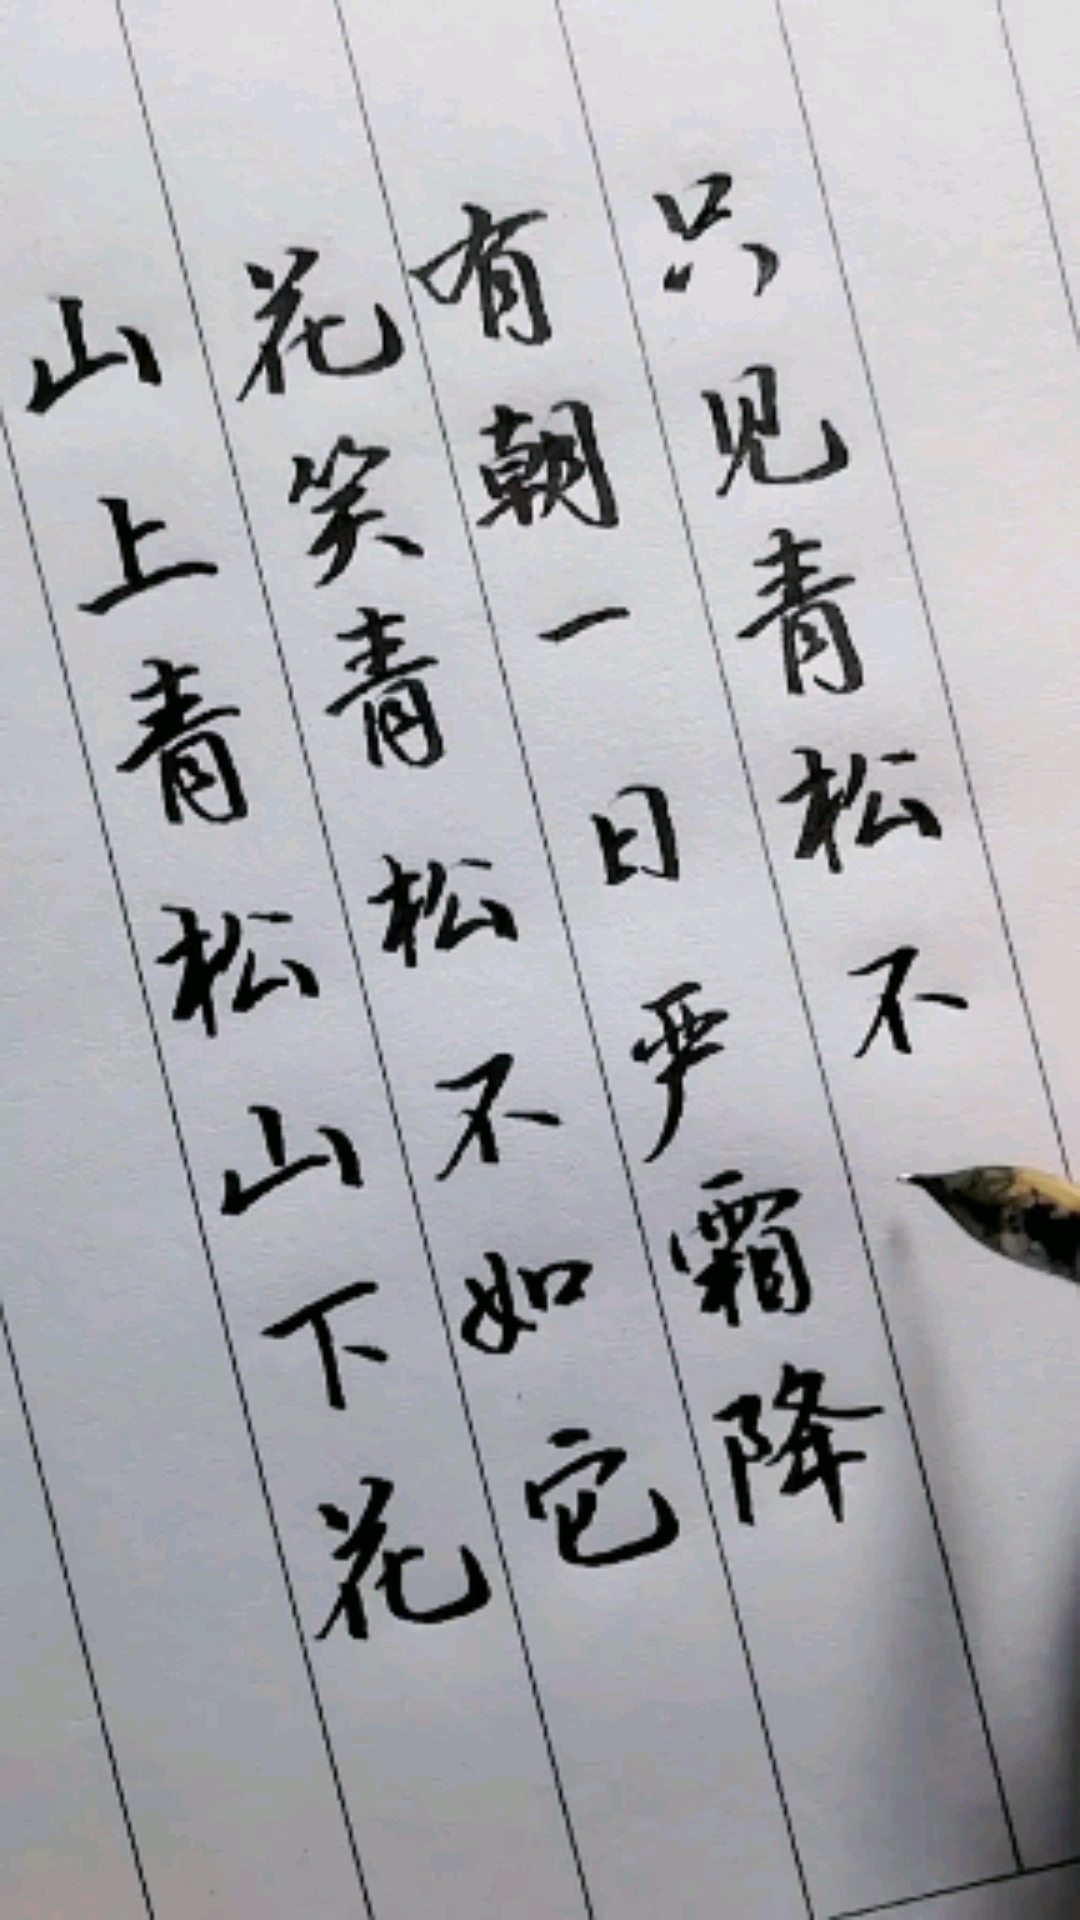 山上青松山下花
花笑青松不如它
有朝一日严霜降
只见青松不